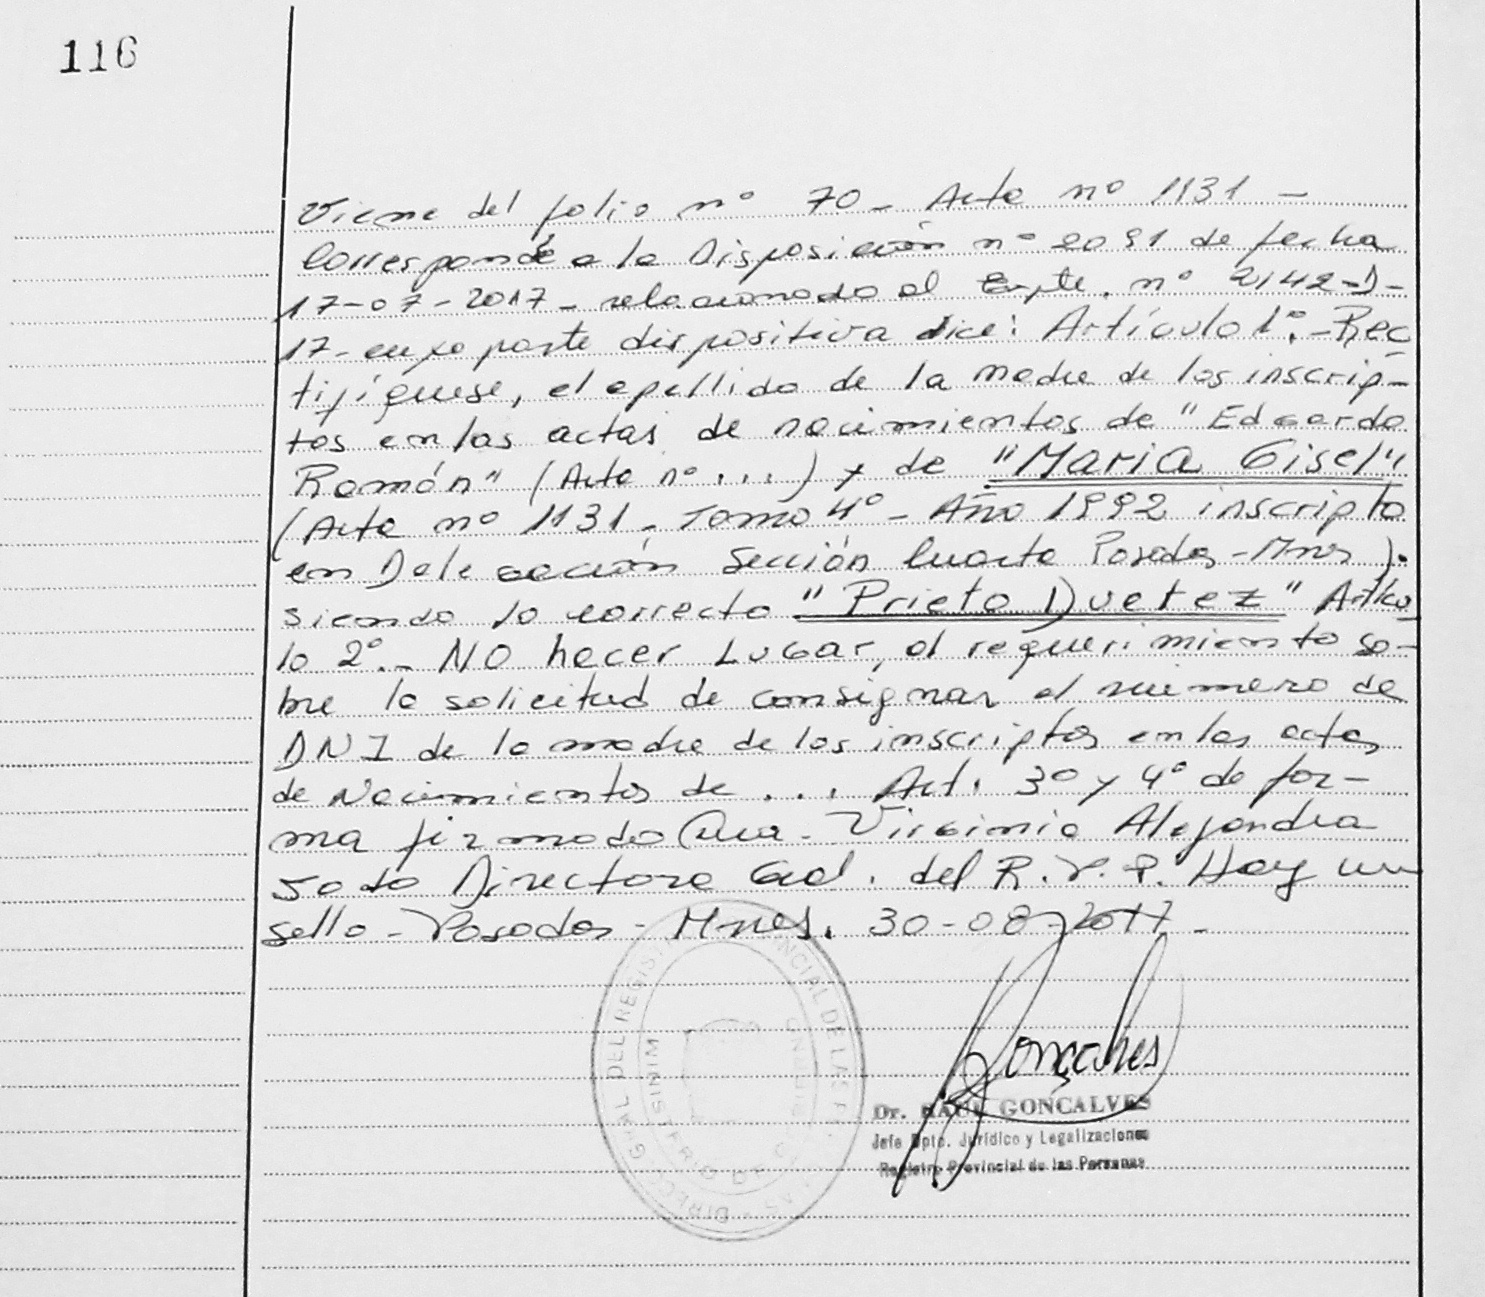 116
Viene del folio nº 70 - Acta nº 1131 -
Corresponde a la Disposición nº 2091 de fecha
17-07-2017 - relacionado al Expte. nº 2142-D-
17- cuya parte dispositiva dice: Artículo 1º.- Rec
tifíquese, el apellido de la madre de los inscrip-
tos en las actas de nacimientos de "Edgardo
Ramón" (Acta nº ...) y de "Maria Gisel"
(Acta nº 1131 - Tomo 4º - Año 1992 inscripto
en Delegación Sección Cuarta Posadas - Mnes).
siendo lo correcto "Prieto Duetez" Artícu
lo 2º.- No hacer Lugar, al requerimiento so-
bre la solicitud de consignar el número de
DNI de la madre de los inscriptos en las actas
de Nacimientos de ... Art. 3º y 4º de for-
ma firmado Dra. Virginia Alejandra
Soto Directora Gral. del R.P.P. Hay un
sello - Posadas - Mnes. 30-08-2017 -
Gonçalves
Dr. RAUL GONCALVES
Jefe Dpto. Jurídico y Legalizaciones
Registro Provincial de las Personas